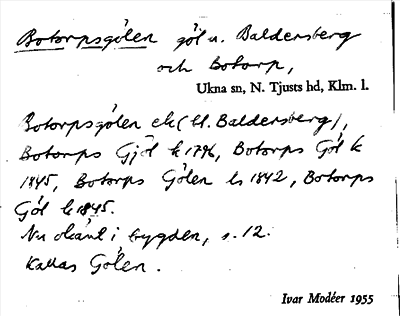 Botorpsgölen göl n. Baldersberg
och Botorp,
Ukna sn, N. Tjusts hd, Klm. l.
Botorpsgölen ek (t. Baldersberg),
Botorps Gjöl k 1796, Botorps Göl k
1845, Botorps Gölen ls 1842, Botorps
Göl k 1845.
Nu okänt i bygden, s. 12.
Kallas Gölen.
Ivar Modéer 1955